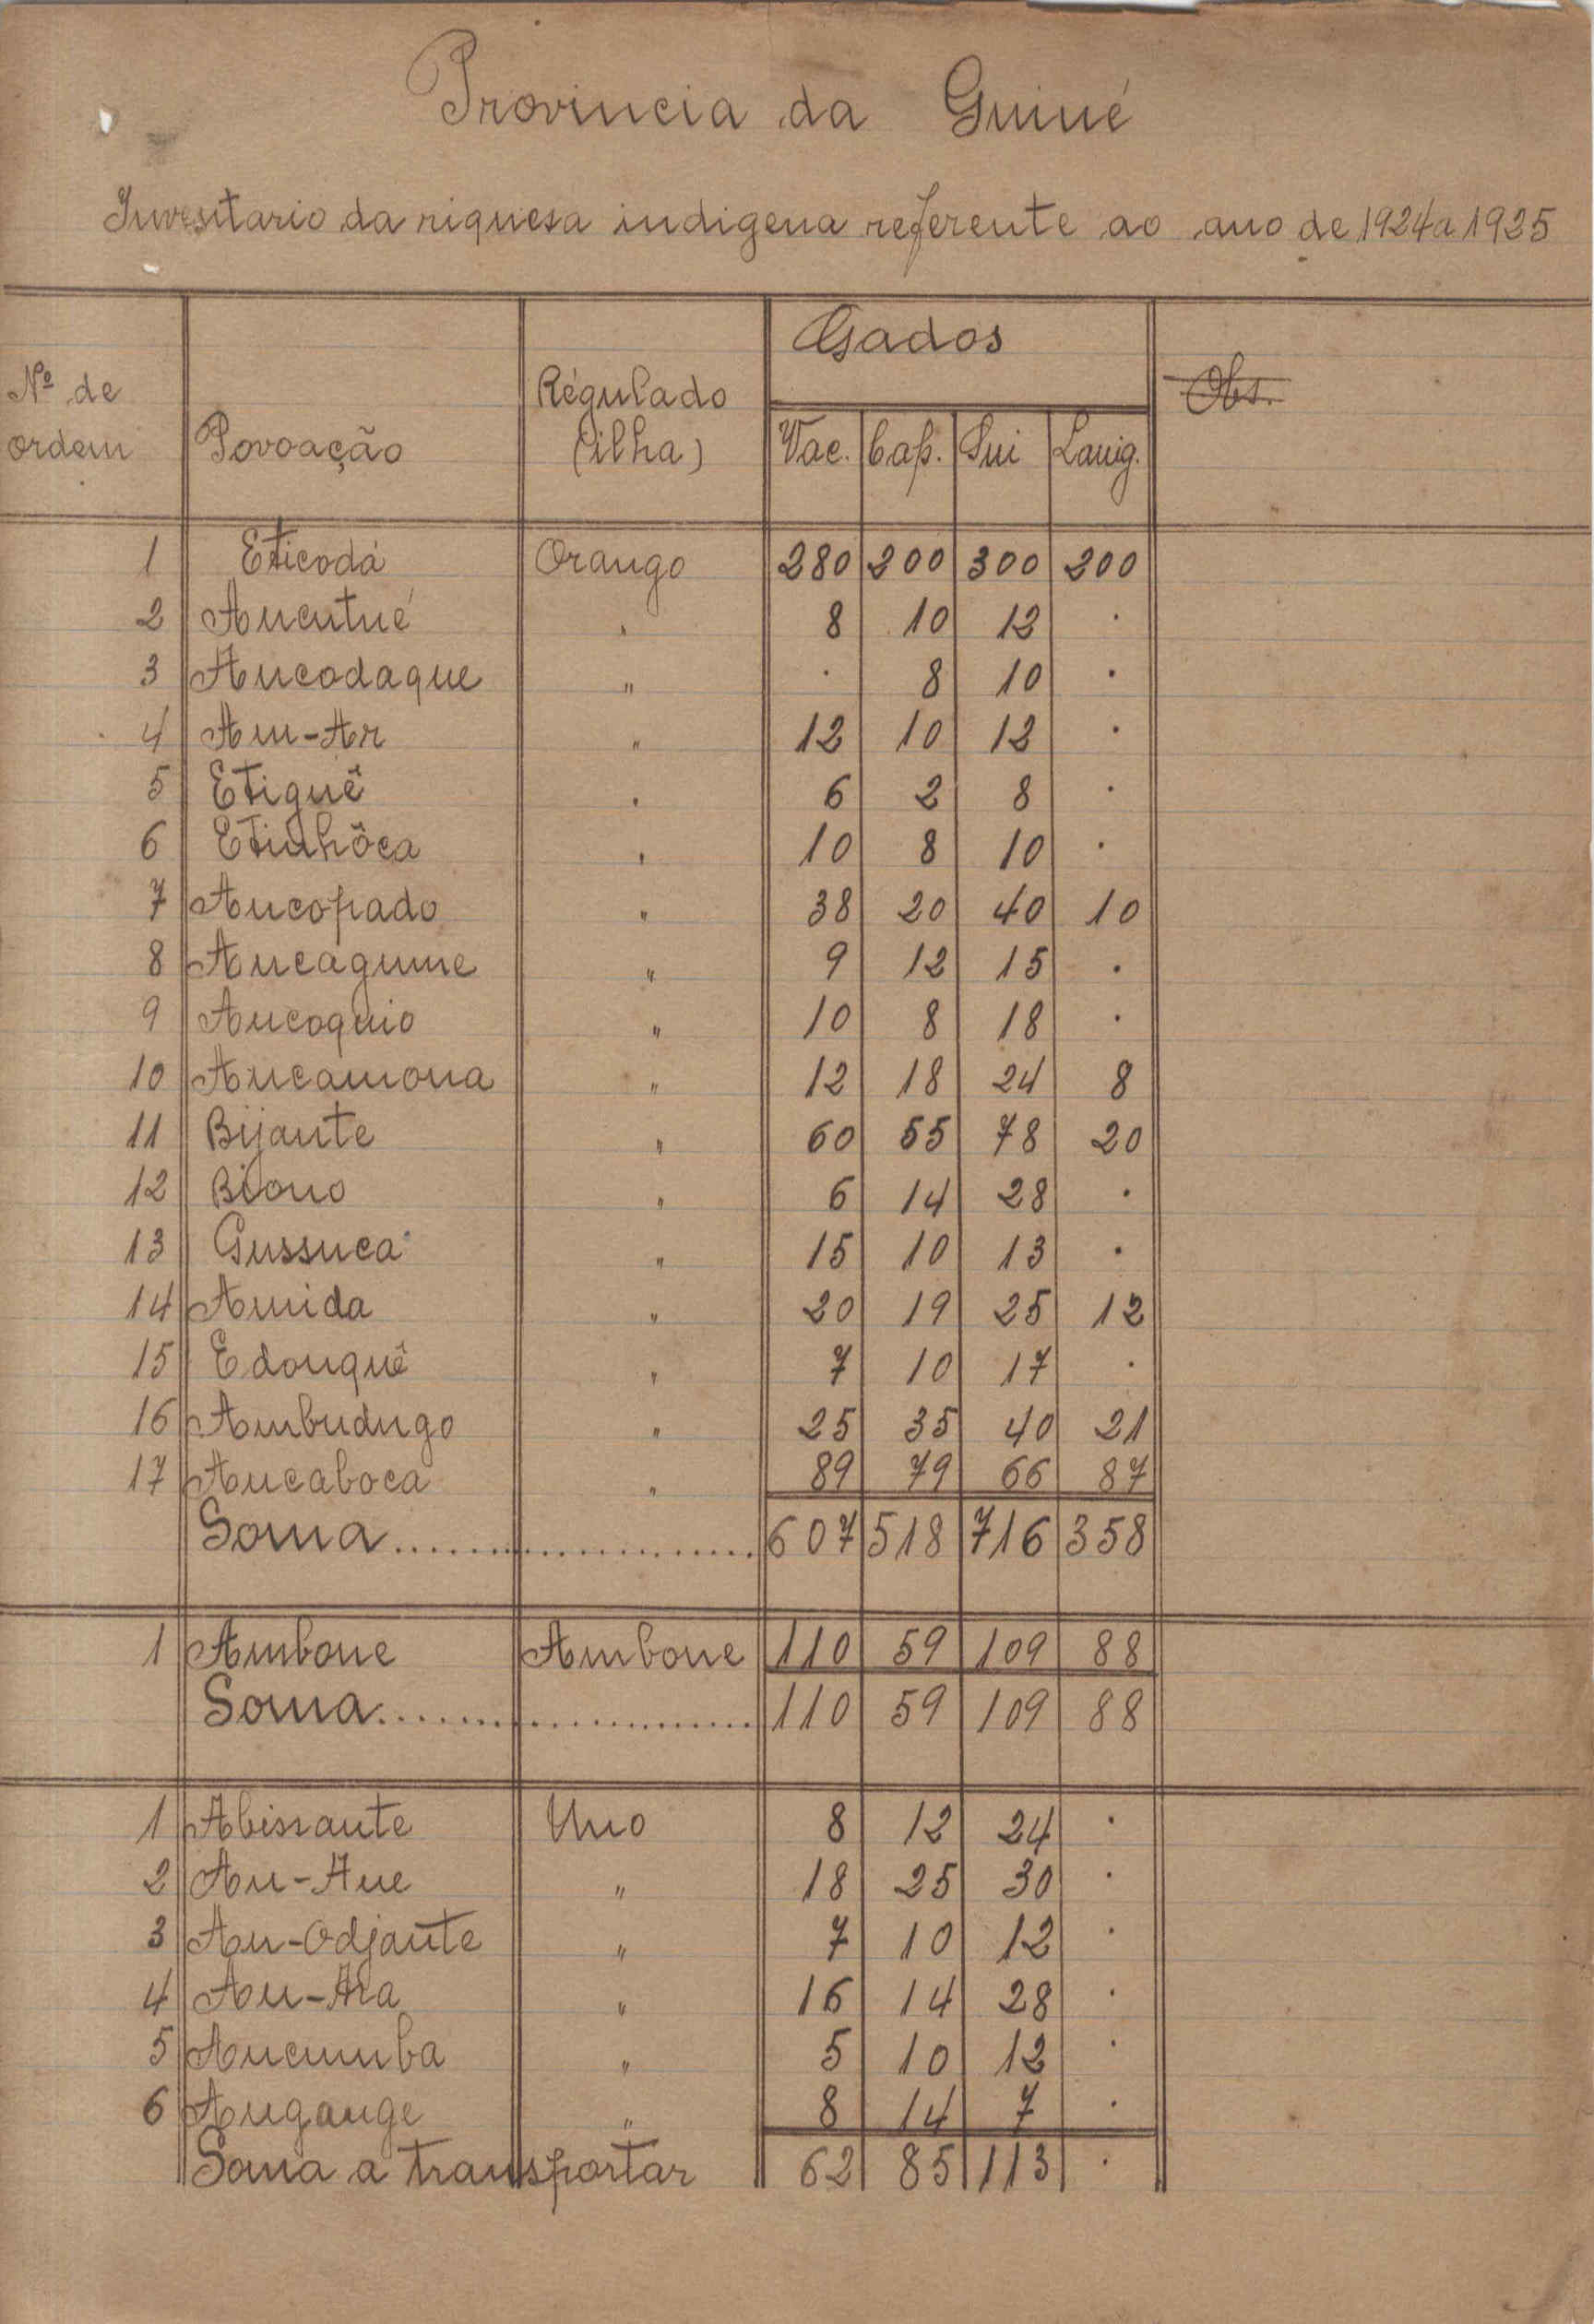 Provincia da Guiné
Inventario da riquesa indigena referente ao ano de 1924 a 1925
Nº de ordem Povoação Régulado (ilha) Gados Obs.
Vac. Cap. Sui Lanig.
1 Eticodá Orango 280 200 300 200
2 Ancutué , 8 10 12 .
3 Ancodaque " . 8 10 .
4 Am-Ar " 12 10 12 .
5 Etiguê . 6 2 8 .
6 Etinhôca , 10 8 10 .
7 Ancopado " 38 20 40 10
8 Ancagume " 9 12 15 .
9 Ancoquio " 10 8 18 .
10 Ancamona " 12 18 24 8
11 Bijante " 60 55 78 20
12 Biono " 6 14 28 .
13 Gussuca " 15 10 13 .
14 Amida " 20 19 25 12
15 Edonquê " 7 10 17 .
16 Ambudugo " 25 35 40 21
17 Ancaboca " 89 79 66 87
Soma........................ 607 518 716 358
1 Ambone Ambone 110 59 109 88
Soma........................ 110 59 109 88
1 Abissante Uno 8 12 24 .
2 An-Aue " 18 25 30 .
3 An-Odjante " 7 10 12 .
4 An-Ara " 16 14 28 .
5 Ancumba " 5 10 12 .
6 Angange " 8 14 7 .
Soma a transportar 62 85 113 .